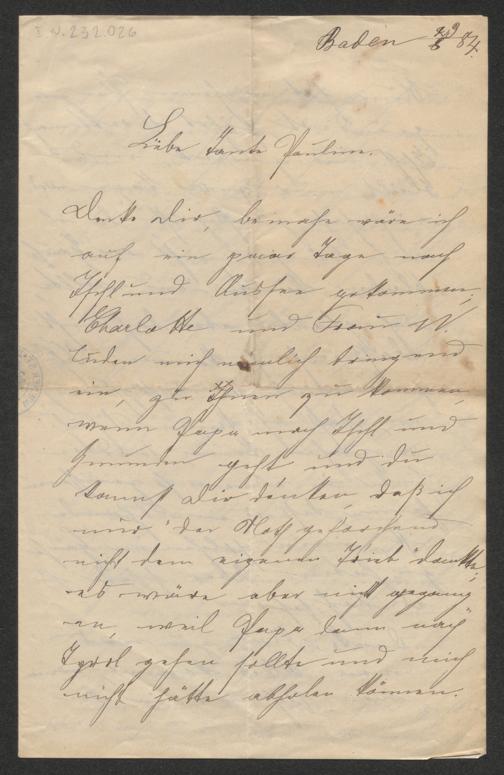 I.N.232.026
Baden 84.
Liebe Tante Pauline.
Denke Dir, beinahe wäre ich
auf ein paar Tage nach
Ischl und Aussee gekommen,
Charlotte und Frau W.
luden mich nämlich dringend
ein, zu Ihnen zu kommen
wenn Papa nach Ischl und
Gmunden geht und du
kannst Dir denken, daß ich
nur "der Noth gehorchend
nicht dem eigenen Trieb" dankte,
es wäre aber nicht gegang
en, weil Papa dann nach
Tyrol gehen sollte und mich
nicht hätte abholen können.